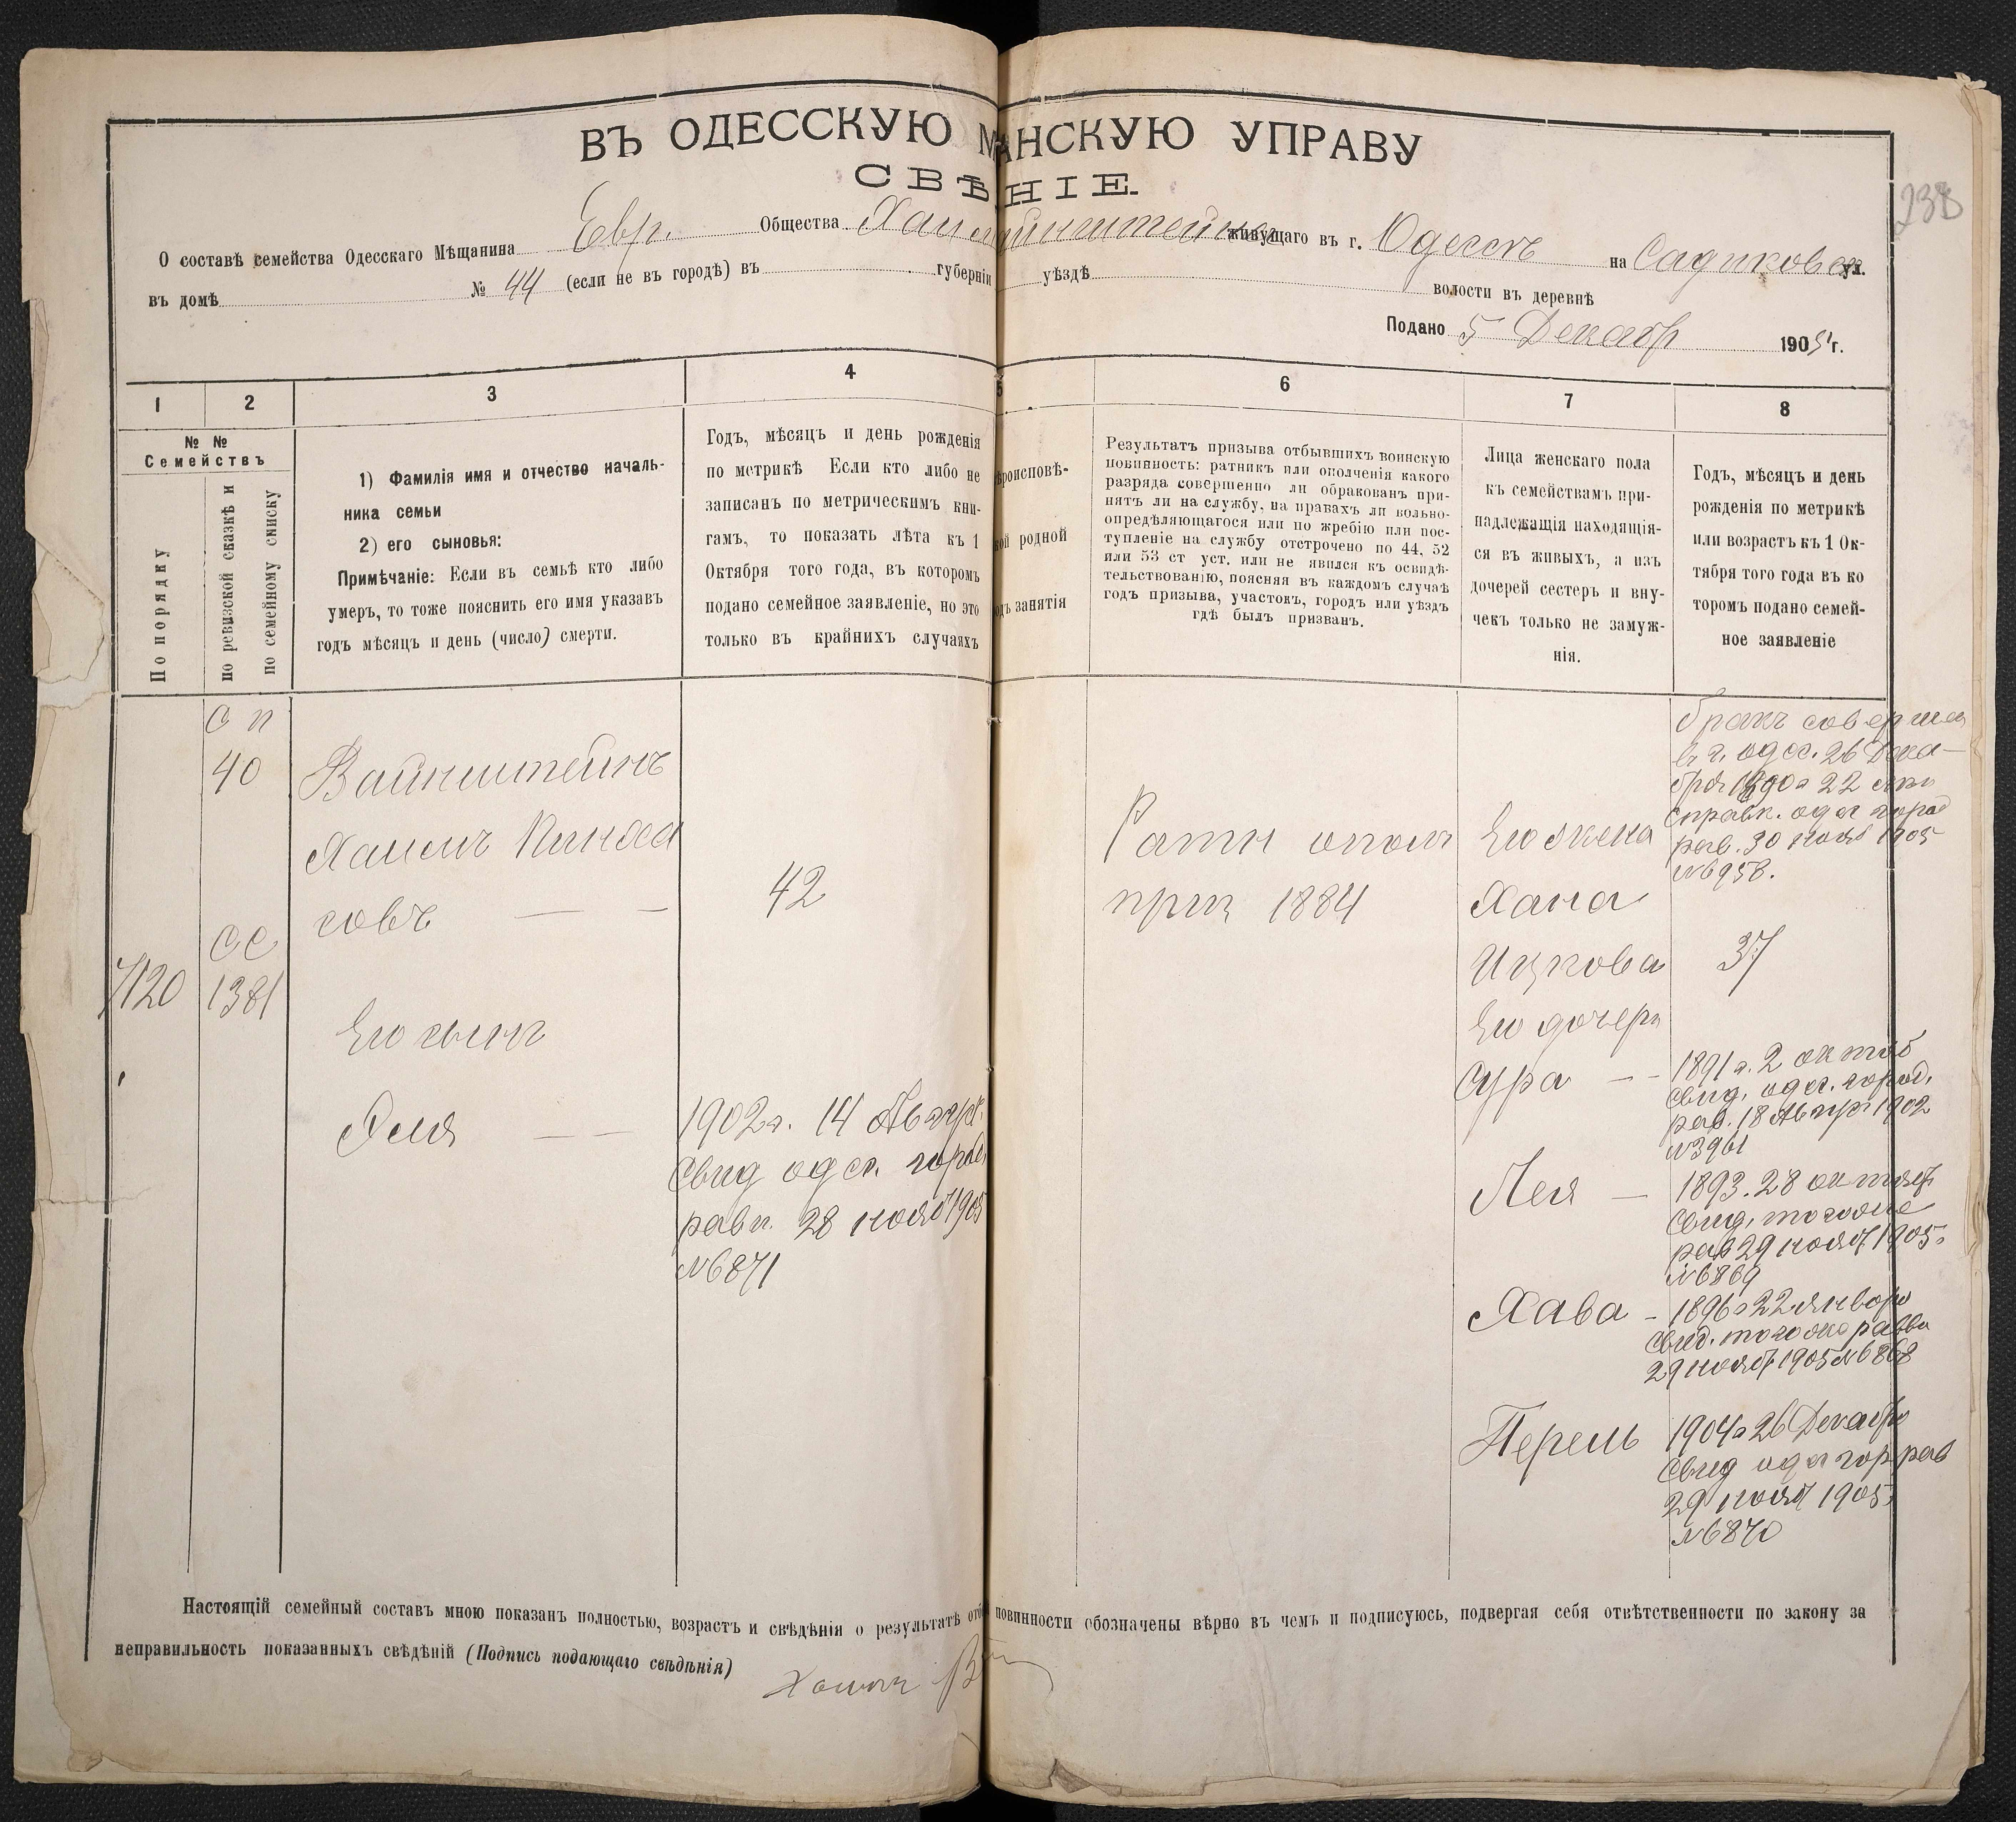 238
ВЪ ОДЕССКУЮ М АНСКУЮ УПРАВУ
СВѢ НІЕ.
О составѣ семейства Одесскаго Мѣщанина Евр. Общества Хаим йнштейна живущаго въ г. Одессѣ на Садиковск ул.
въ домѣ № 44 (если не въ городѣ) въ губерніи уѣздѣ волости въ деревнѣ
Подано 5 Декабр 1905 г.
1
2
3
4
5
6
7
8
№ №
Семействъ
По порядку
по ревизской сказкѣ и
по семейному списку
1) Фамилія имя и отчество началь-
ника семьи
2) его сыновья:
Примѣчаніе: Если въ семьѣ кто либо
умеръ, то тоже пояснить его имя указавъ
годъ мѣсяцъ и день (число) смерти.
Годъ, мѣсяцъ и день рожденія
по метрикѣ Если кто либо не
записанъ по метрическимъ кни-
гамъ, то показать лѣта къ 1
Октября того года, въ которомъ
подано семейное заявленіе, но это
только въ крайнихъ случаяхъ
ѣроисповѣ-
кой родной
одъ занятія
Результатъ призыва отбывшихъ воинскую
повинность: ратникъ или ополченія какого
разряда совершенно ли обракованъ при-
нятъ ли на службу, на правахъ ли вольно-
опредѣляющагося или по жребію или пос-
тупленіе на службу отстрочено по 44, 52
или 53 ст уст. или не явился къ освидѣ-
тельствованію, поясняя въ каждомъ случаѣ
годъ призыва, участокъ, городъ или уѣздъ
гдѣ былъ призванъ.
Лица женскаго пола
къ семействамъ при-
надлежащія находящія-
ся въ живыхъ, а изъ
дочерей сестеръ и вну-
чекъ только не замуж-
нія.
Годъ, мѣсяцъ и день
рожденія по метрикѣ
или возрастъ къ 1 Ок-
тября того года въ ко
торомъ подано семей-
ное заявленіе
7120
с п
40
СС
1381
Вайнштейнъ
Хаимъ Пинха
совъ
Его сынъ
Эля
42
1902 г. 14 Август
Свид одес. город
равв. 28 нояб 1905
№6871
Ратн опол
приз 1884
Его жена
Хана
Ицкова
Его дочери
Сура
Лея
Хава
Перель
бракъ соверше
в г. одес. 26 Дека-
бря 1890 г 22
Справк. одес город
рав. 30 нояб 1905
№6958.
37
1891 г. 2 октяб
свид. одес. город.
рав. 18 Август 1902
№3961
1893. 28 октяб
Свид. того же
рав 29 нояб 1905
№6869
1896 г 22 январ
Свид. того же равви
29 нояб 1905 №6868
1904 г 26 Декабр
Свид одес гор рав
29 нояб 1905
№6870
Настоящій семейный составъ мною показанъ полностью, возрастъ и свѣдѣнія о результатѣ отб повинности обозначены вѣрно въ чемъ и подписуюсь, подвергая себя отвѣтственности по закону за
неправильность показанныхъ свѣдѣній (Подпись подающаго свѣдѣнія)
Хаимъ В